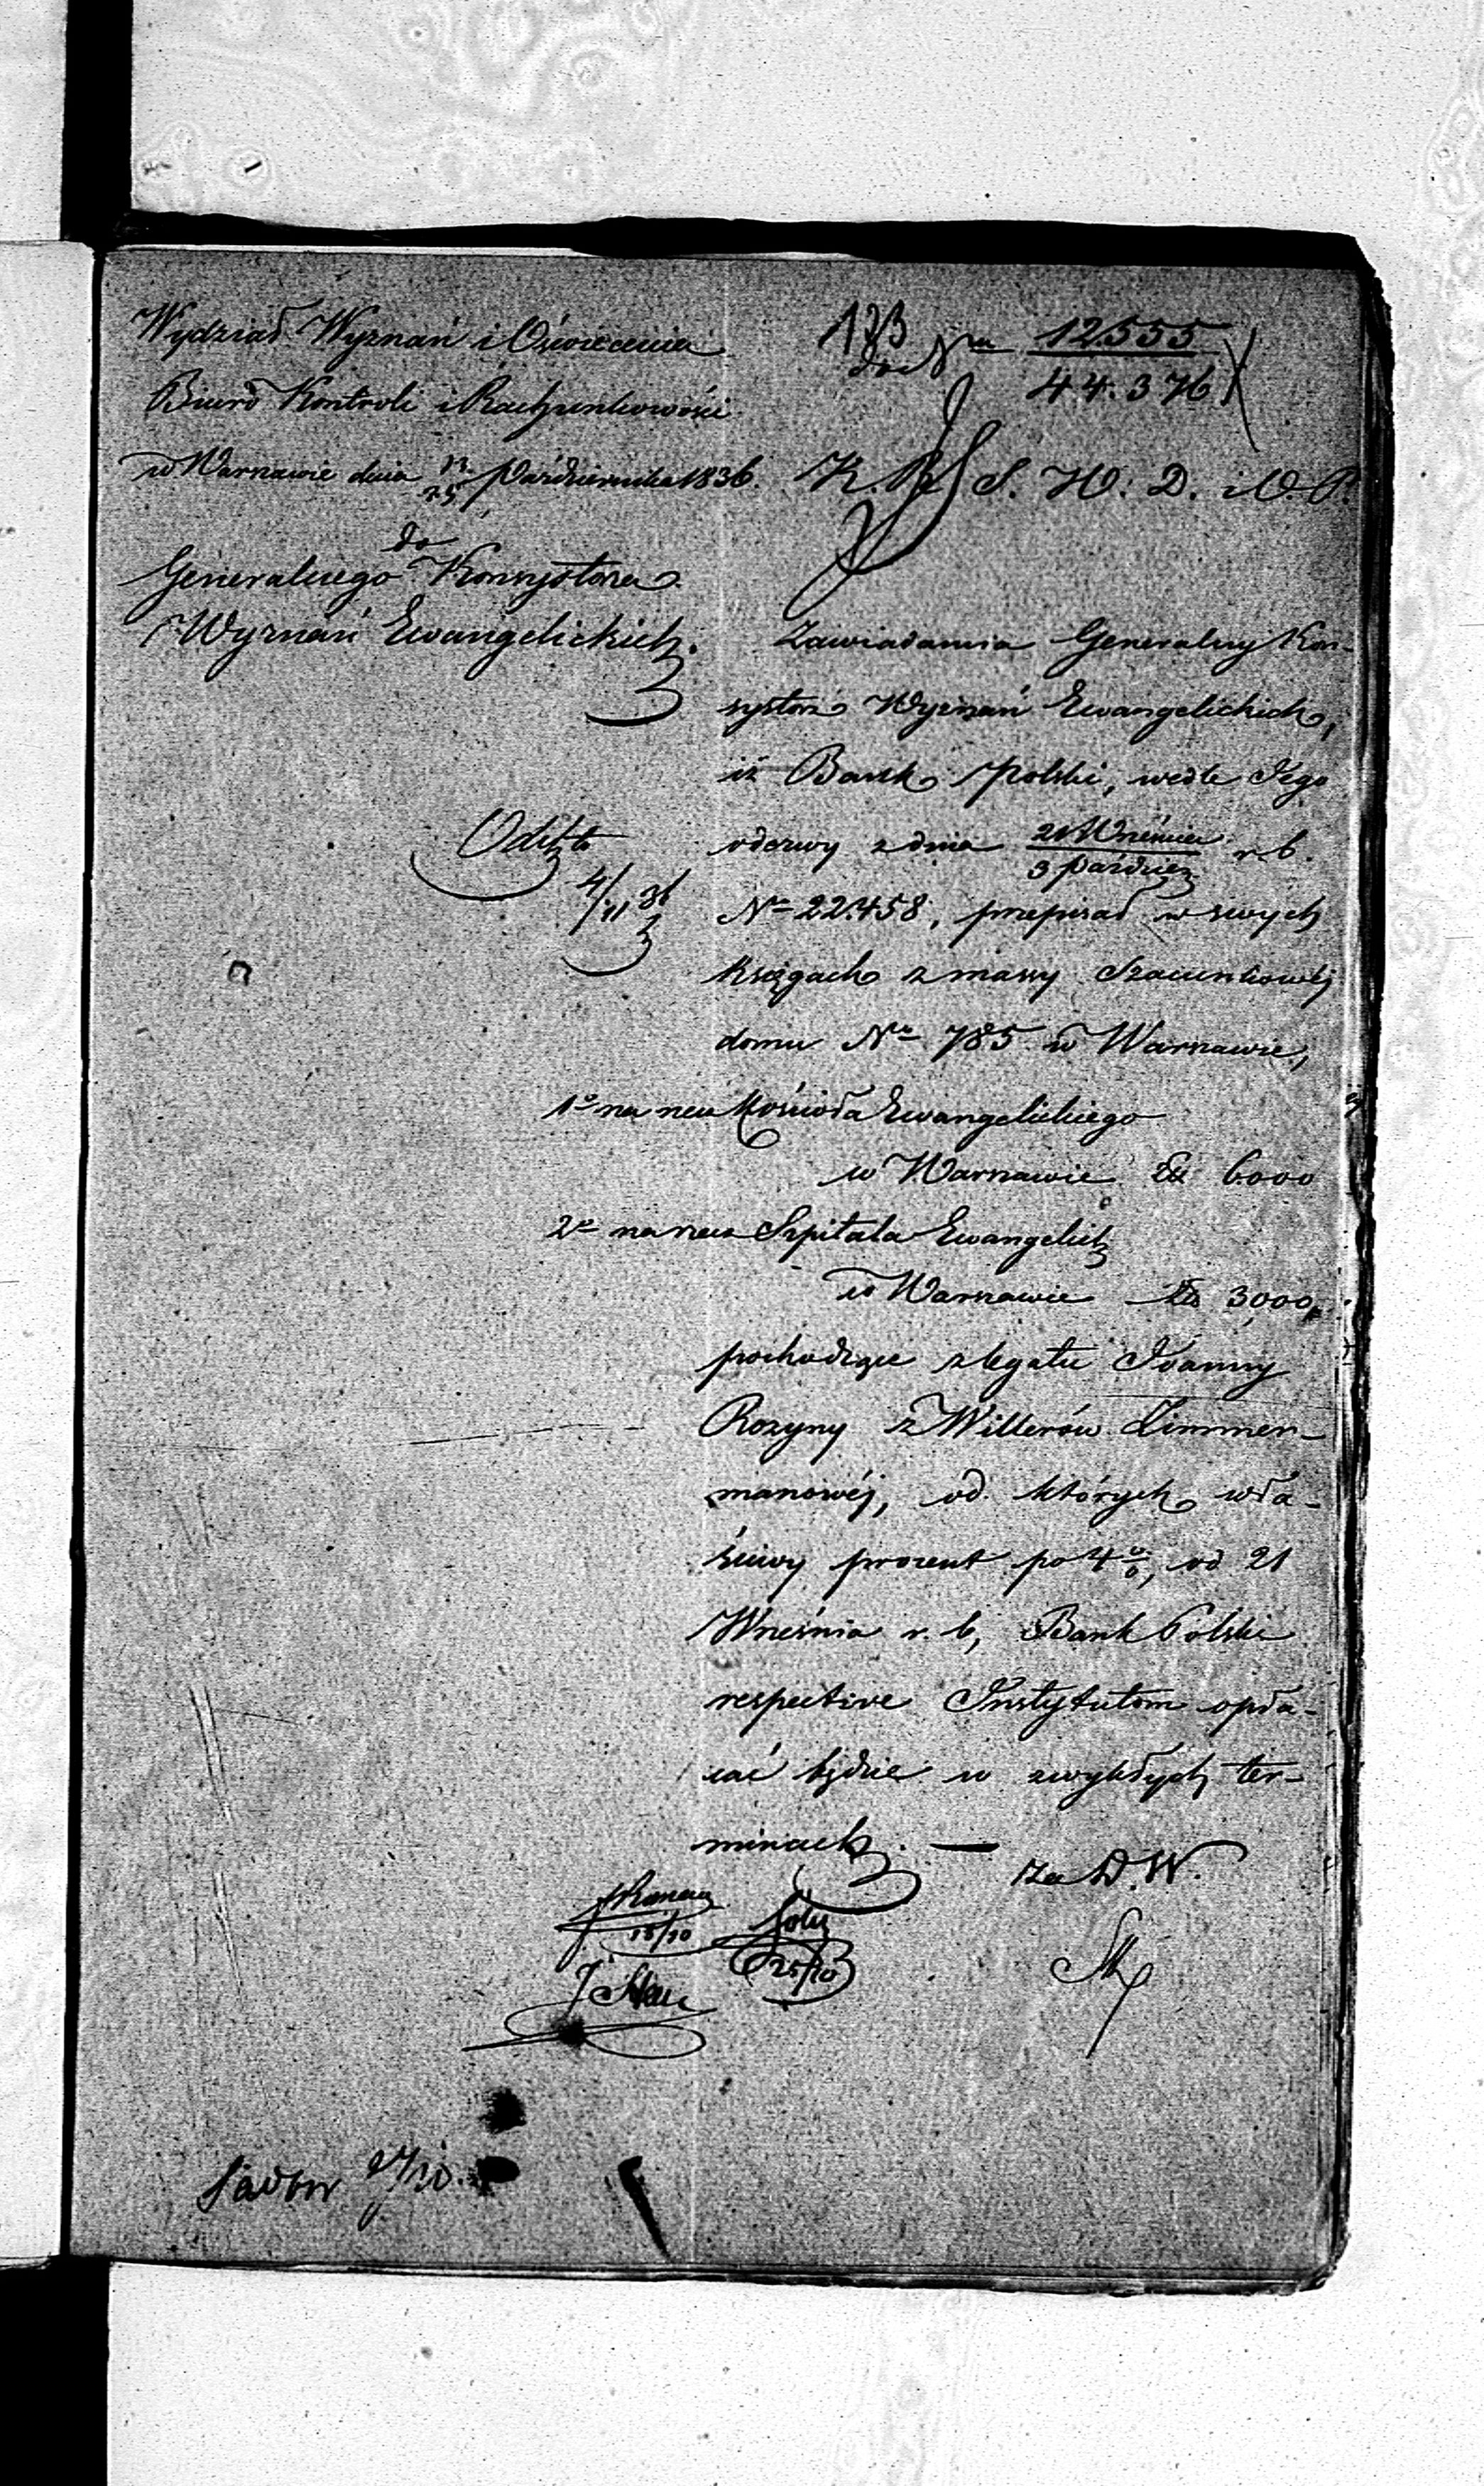 Wydział Wyznań i Oświecenia
Biuro Kontroli i Rachunkowości
w Warszawie dnia 13/25 Października 1836.
do
Generalnego Konsystorza
Wyznań Ewangelickich.
123
do Nru 12555
44.376
K. R. S. W. D. i O. P.
Zawiadamia Generalny Kon-
systorz Wyznań Ewangelickich,
iż Bank Polski, wedle Jego
odezwy z dnia 21 Wrześnier / 3 Paździer r. b.
No 22.458, przepisał w swych
księgach z massy Szacunkowéj
domu Nro 785 w Warszawie,
1o na rzecz Kościoła Ewangelickiego
w Warszawie Zł 6000
2o na rzecz Szpitala Ewangelich
w Warszawie Zł 3000,
pochodzące z legatu Joanny
Rozyny z Willerów Zimmer-
manowéj, od których wła-
ściwy procent po 4 %, od 21
Września r. b, Bank Polski
respective Instytutom opła-
cać będzie w zwykłych ter-
minach. —
za D. W.
4/11 36
15/10
25/10
27/10.